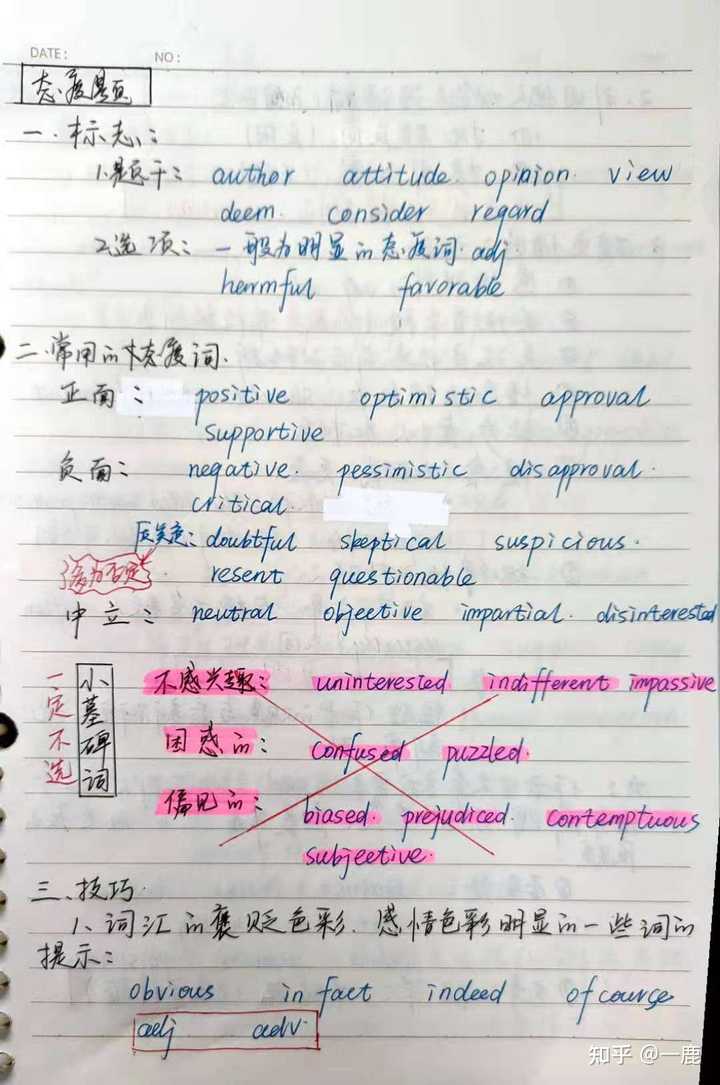 DATE: NO:
态度题
一.标志:
1.题干: author attitude. opinion. view
deem. consider regard
2.选项: 一般为明显的态度词. adj
harmful favorable
二.常用的态度词.
正面: positive optimistic approval
supportive
负面: negative. pessimistic disapproval.
critical.
质疑: doubtful skeptical suspicious.
resent questionable
中立: neutral objective impartial. disinterested
一定不选
小墓碑词
不感兴趣: uninterested indifferent impassive
困惑的: confused puzzled.
偏见的: biased. prejudiced. contemptuous
subjective.
三、技巧.
1、词汇的褒贬色彩、感情色彩明显的一些词的
提示:
obvious in fact indeed of course
adj adv.
知乎 @一鹿